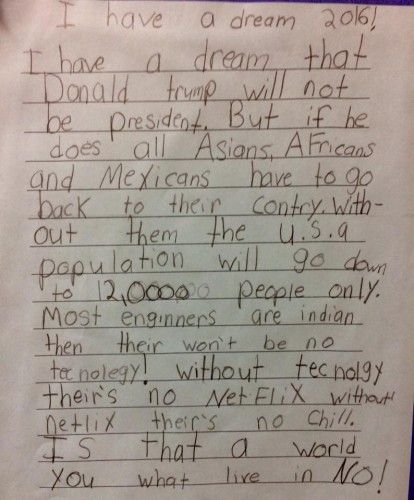 I have a dream 2016!
I have a dream that
Donald trump will not
be president. But if he
does all Asians, AFricans
and Mexicans have to go
back to their contry. With-
out them the U.S.a
population will go down
to 12,000000 people only.
Most enginners are indian
then their won't be no
technolegy! without tecnolgy
their's no NetFLiX without
netlix their's no chill.
IS that a world
you what live in NO!